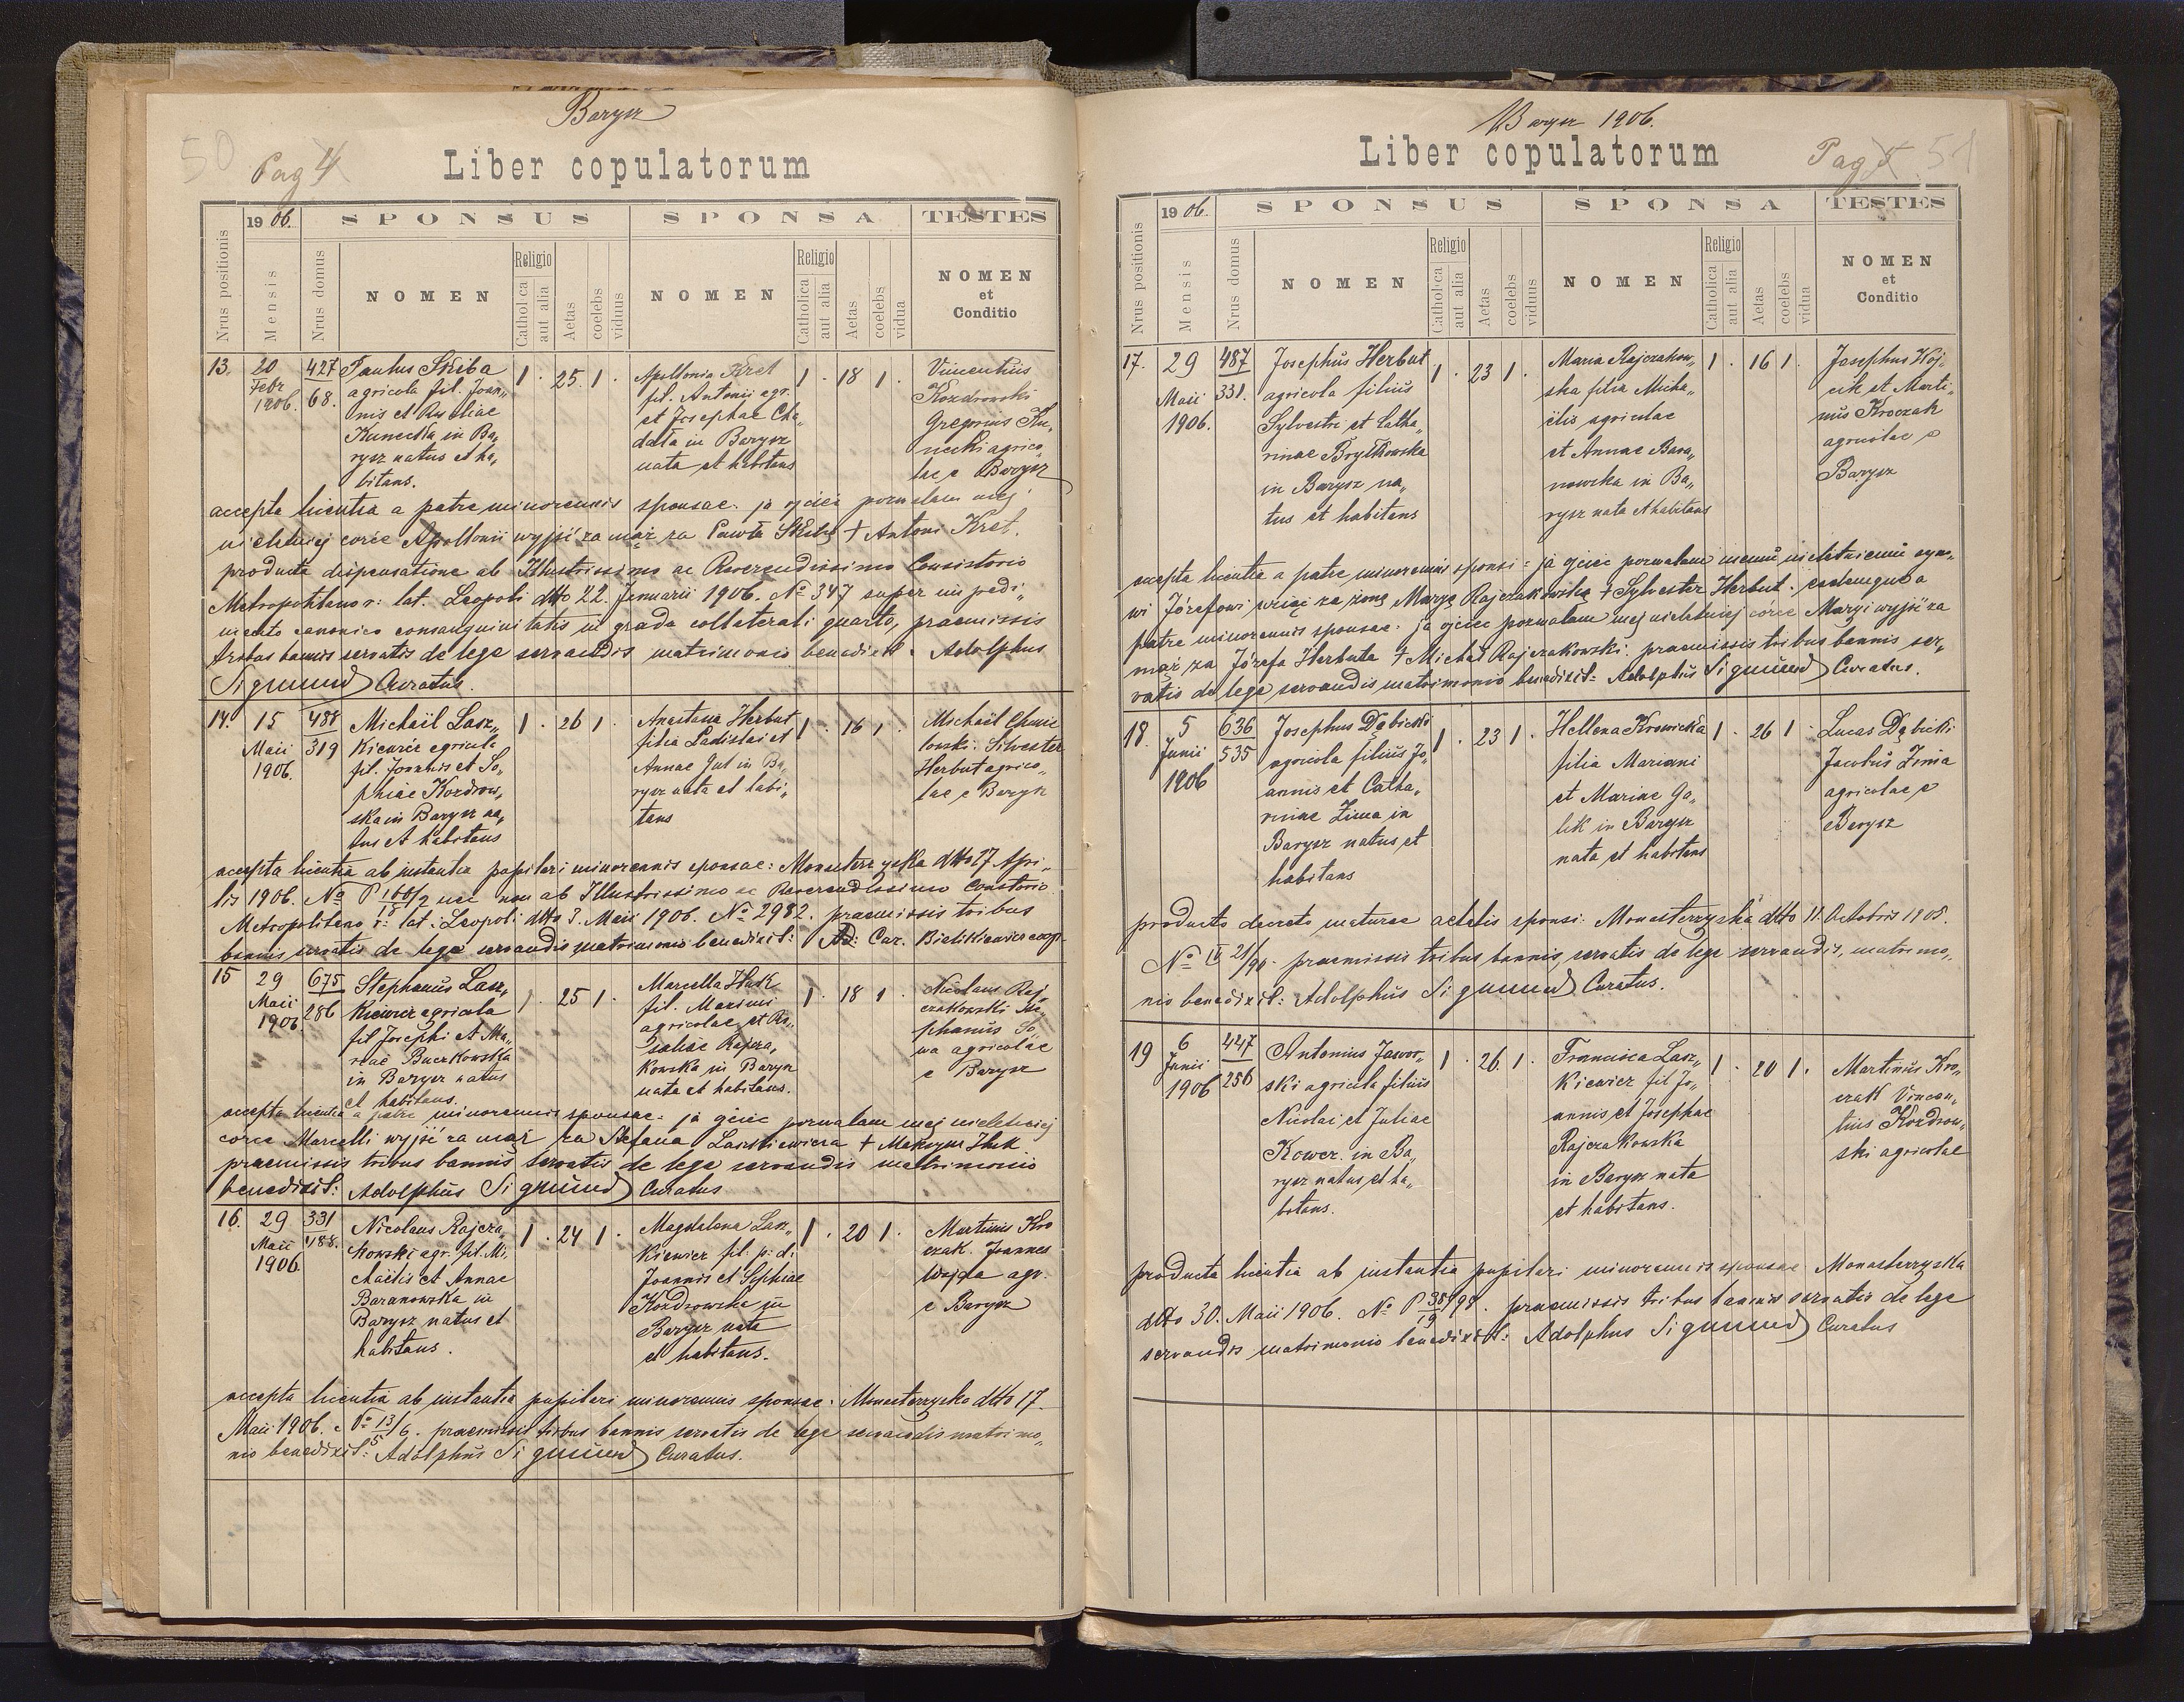 Barysz
50 Pag 4
Liber copulatorum
1906. SPONSUS SPONSA TESTES
Nrus positionis
Mensis
Nrus domus
NOMEN
Religio
Catholica
aut alia
Aetas
coelebs
viduus
NOMEN
Religio
Catholica
aut alia
Aetas
coelebs
vidua
NOMEN
et
Conditio
13. 20
Febr
1906.
427
68.
Paulus Skiba
agricola fil. Joan„
nis et Rosaliae
Kunecka in Ba„
rysz natus et ha„
bitans.
1 . 25 . 1 .
Apollonia Kret
fil. Antonii agr.
et Josephae Cha„
data in Barysz
nata et habitans
1 . 18 1 .
Vincentius
Kozdrowski
Gregorius Ku„
necki agrico„
lae e Barysz
accepta licentia a patre minorennis sponsae: ja ojciec pozwalam mej
nieletniej córce Apollonii wyjść za mąż za Pawła Skibę + Antoni Kret.
producta dispensatione ab Illustrissimo ac Reverendissimo Consistorio
Metropolitano r: lat. Leopoli dtto 22. Januarii 1906. No 347 super impedi„
mento canonico consanguinitatis in gradu collaterali quarto, praemissis
tribus bannis servatis de lege servandis matrimonio benedixit. Adolphus
Sigmund Curatus.
14. 15
Maii
1906.
488
319
Michaël Lasz„
kiewicz agricola
fil. Joannis et So„
phiae Kozdrow„
ska in Barysz na„
tus et habitans
1 . 26 1 .
Anastasia Herbut
filia Ladislai et
Annae Gut in Ba„
rysz nata et habi„
tans
1 . 16 1 .
Michaël Chmie
lowski. Silvester
Herbut agrico„
lae e Barysz
accepta licentia ab instantia pupilari minorennis sponsae: Monasterzyska dtto 17 Apri„
lis 1906. No P 160/2 nec non ab Illustrissimo ac Reverendissimo Consistorio
18
Metropolitano r: lat: Leopoli dtto 3. Maii 1906. No 2982. praemissis tribus
bannis servatis de lege servandis matrimonio benedixit: Ad: Car. Bielikiewicz coop.
15 29
Maii
1906
675
286
Stephanus Lasz„
kiewicz agricola
fil Josephi et Ma„
riae Buczkowska
in Barysz natus
et habitans.
1 . 25 1 .
Marcella Huk
fil. Maximi
agricolae et Ro„
saliae Rajcza„
kowska in Barysz
nata et habitans.
1 . 18 1 .
Nicolaus Raj
czakowski Ste„
phanus So„
wa agricolae
e Barysz
accepta licentia a patre minorennis sponsae: ja ojciec pozwalam mej nieletniej
córce Marcelli wyjść za mąż za Stefana Laszkiewicza + Maksym Huk
praemissis tribus bannis servatis de lege servandis matrimonio
benedixit: Adolphus Sigmund Curatus
16. 29
Maii
1906.
331
488.
Nicolaus Rajcza„
kowski agr. fil. Mi„
chaëlis et Annae
Baranowska in
Barysz natus et
habitans.
1 . 24 1 .
Magdalena Lasz„
kiewicz fil. p. d.
Joannis et Sophiae
Kozdrowska in
Barysz nata
et habitans.
1 . 20 1 .
Martinus Kro
czak. Joannes
Wojda agr.
e Barysz
accepta licentia ab instantia pupilari minorennis sponsae: Monasterzyska dtto 17.
Maii 1906. No 13/6. praemissis tribus bannis servatis de lege servandis matrimo„
5
nio benedixit: Adolphus Sigmund Curatus.
Barysz 1906.
Liber copulatorum
Pag 5 51
1906. SPONSUS SPONSA TESTES
Nrus positionis
Mensis
Nrus domus
NOMEN
Religio
Catholica
aut alia
Aetas
coelebs
viduus
NOMEN
Religio
Catholica
aut alia
Aetas
coelebs
vidua
NOMEN
et
Conditio
17. 29
Maii
1906.
487
331.
Josephus Herbut
agricola filius
Sylvestri et Catha„
rinae Brytkowska
in Barysz na„
tus et habitans
1 . 23 1 .
Maria Rajczakow„
ska filia Micha„
ëlis agricolae
et Annae Bara„
nowska in Ba„
rysz nata et habitans
1 . 16 1 .
Josephus Woj„
cik et Marti„
nus Kroczak
agricolae e
Barysz
accepta licentia a patre minorennis sponsi: ja ojciec pozwalam memu nieletniemu syno„
wi Józefowi wziąć za żonę Maryę Rajczakowską + Sylvester Herbut. eademque a
patre minorennis sponsae: ja ojciec pozwalam mej nieletniej córce Maryi wyjść za
mąż za Józefa Herbuta + Michał Rajczakowski. praemissis tribus bannis ser„
vatis de lege servandis matrimonio benedixit: Adolphus Sigmund Curatus.
18. 5
Junii
1906
636
535
Josephus Dąbicki
agricola filius Jo„
annis et Catha„
rinae Zima in
Barysz natus et
habitans
1 . 23 1 .
Hellena Krowicka
filia Mariani
et Mariae Ga„
lik in Barysz
nata et habitans
1 . 26 1 .
Lucas Dąbicki
Jacobus Zima
agricolae e
Barysz
producto decreto maturae aetatis sponsi: Monasterzyska dtto 11. Octobris 1905.
No IV 21/90. praemissis tribus bannis, servatis de lege servandis, matrimo„
nio benedixit: Adolphus Sigmund Curatus.
19 6
Junii
1906
447
256
Antonius Jawor„
ski agricola filius
Nicolai et Juliae
Kower. in Ba„
rysz natus, et ha„
bitans.
1 . 26. 1 .
Francisca Lasz„
kiewicz fil Jo„
annis et Josephae
Rajczakowska
in Barysz nata
et habitans.
1 . 20 1 .
Martinus Kro„
czak Vincen„
tius Kozdrow„
ski agricolae
producta licentia ab instantia pupilari minorennis sponsae Monasterzyska
dtto 30. Maii 1906. No P 38/99. praemissis tribus bannis servatis de lege
19
servandis matrimonio benedixit: Adolphus Sigmund Curatus